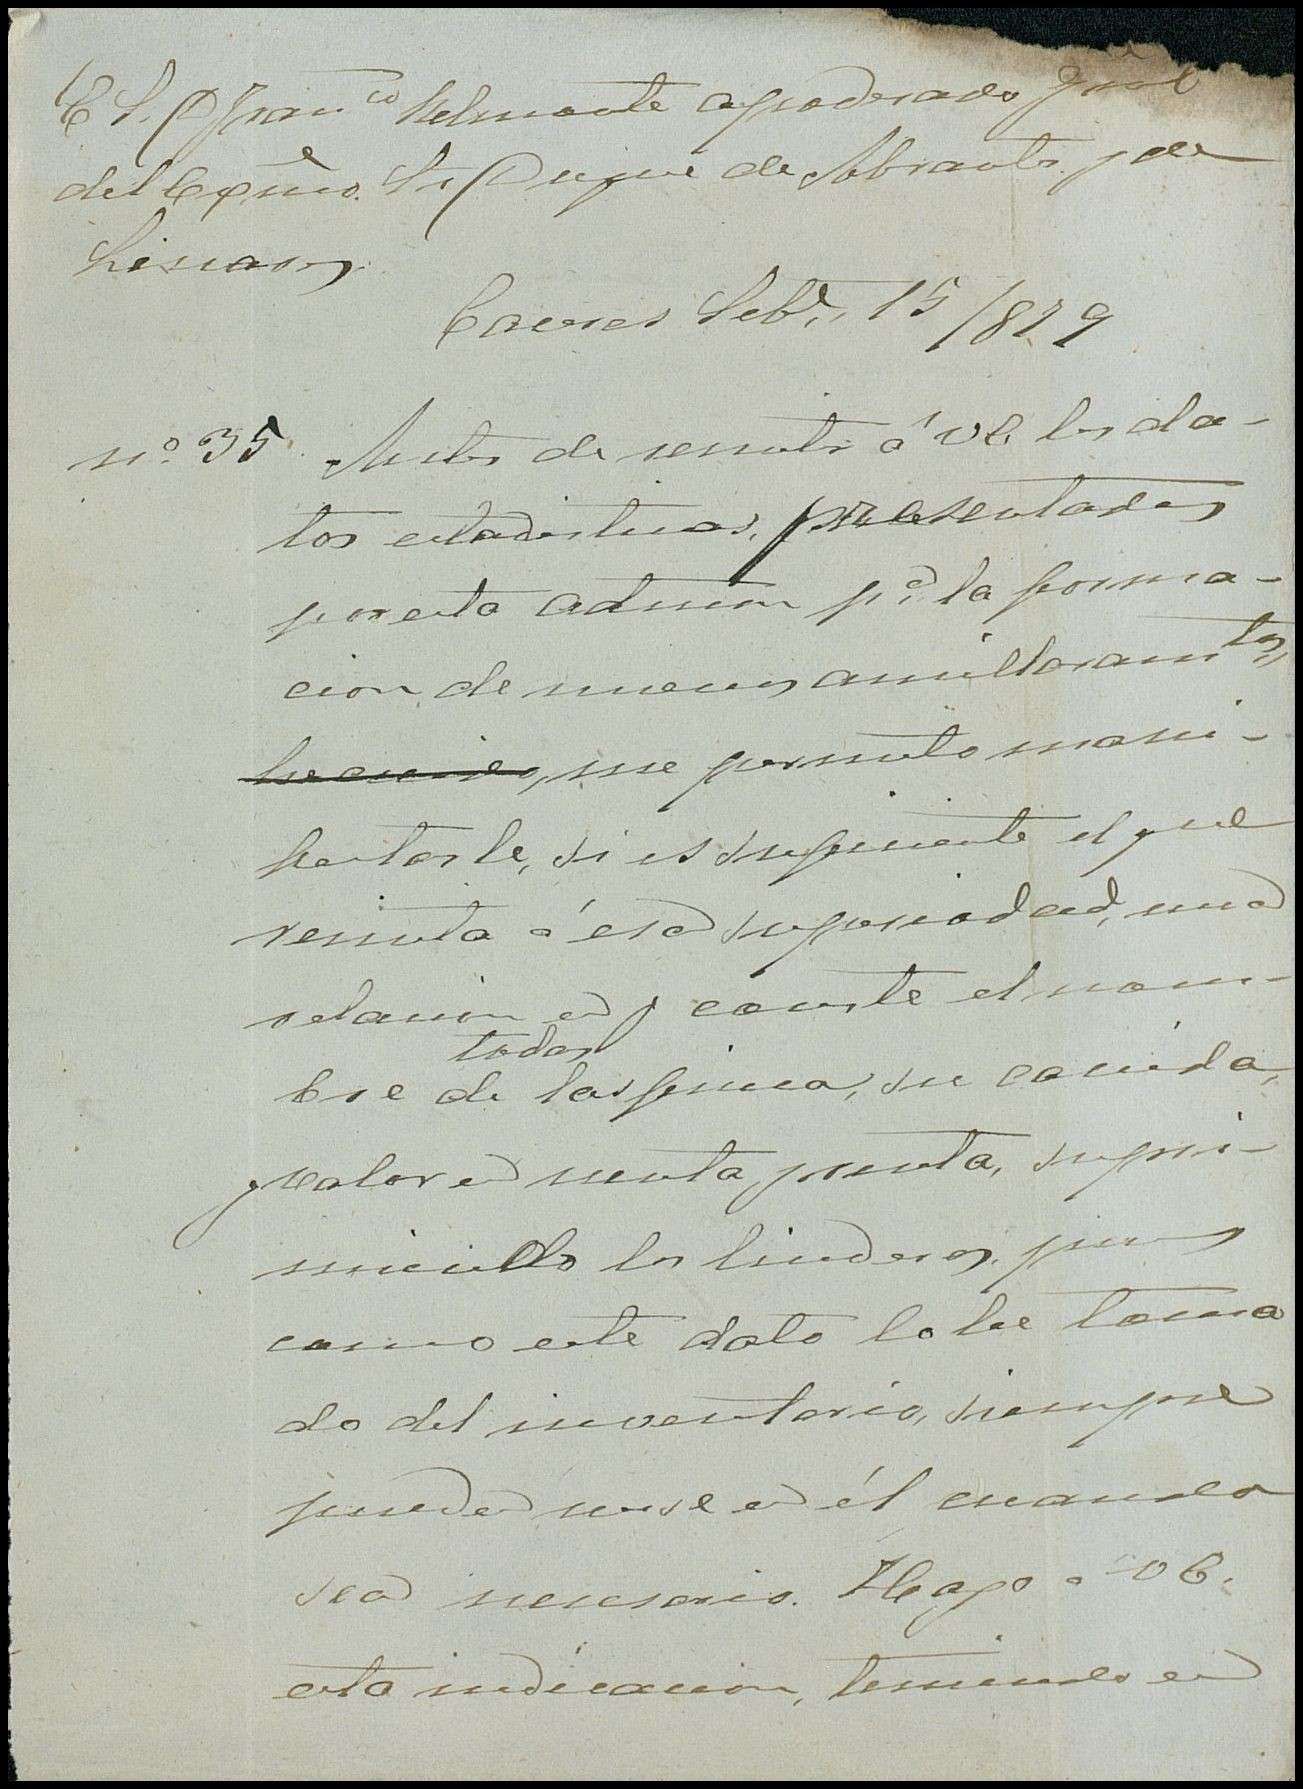 E. S. D. Fran.co Belmonte apoderado gral
del Excmo. Sr. Duque de Abrantes y de
Linares
Caceres Feb.o 15/879
n.o 35. Antes de remitir á V.E. los da-
tos estadisticos, presentados
por esta admon p.a la forma-
cion de nuevos amillaram.tos,
me permito mani-
festarle, si es suficiente el que
remita á esa superiodad, una
relacion en q conste el nom-
todas
bre de las fincas, su cavida,
valor en venta y renta, supri-
miendo los linderos, pues
como este dato lo he toma
do del inventario, siempre
pueden verse en él cuando
sea necesario. Hago á V.E.
esta indicacion, teniendo en